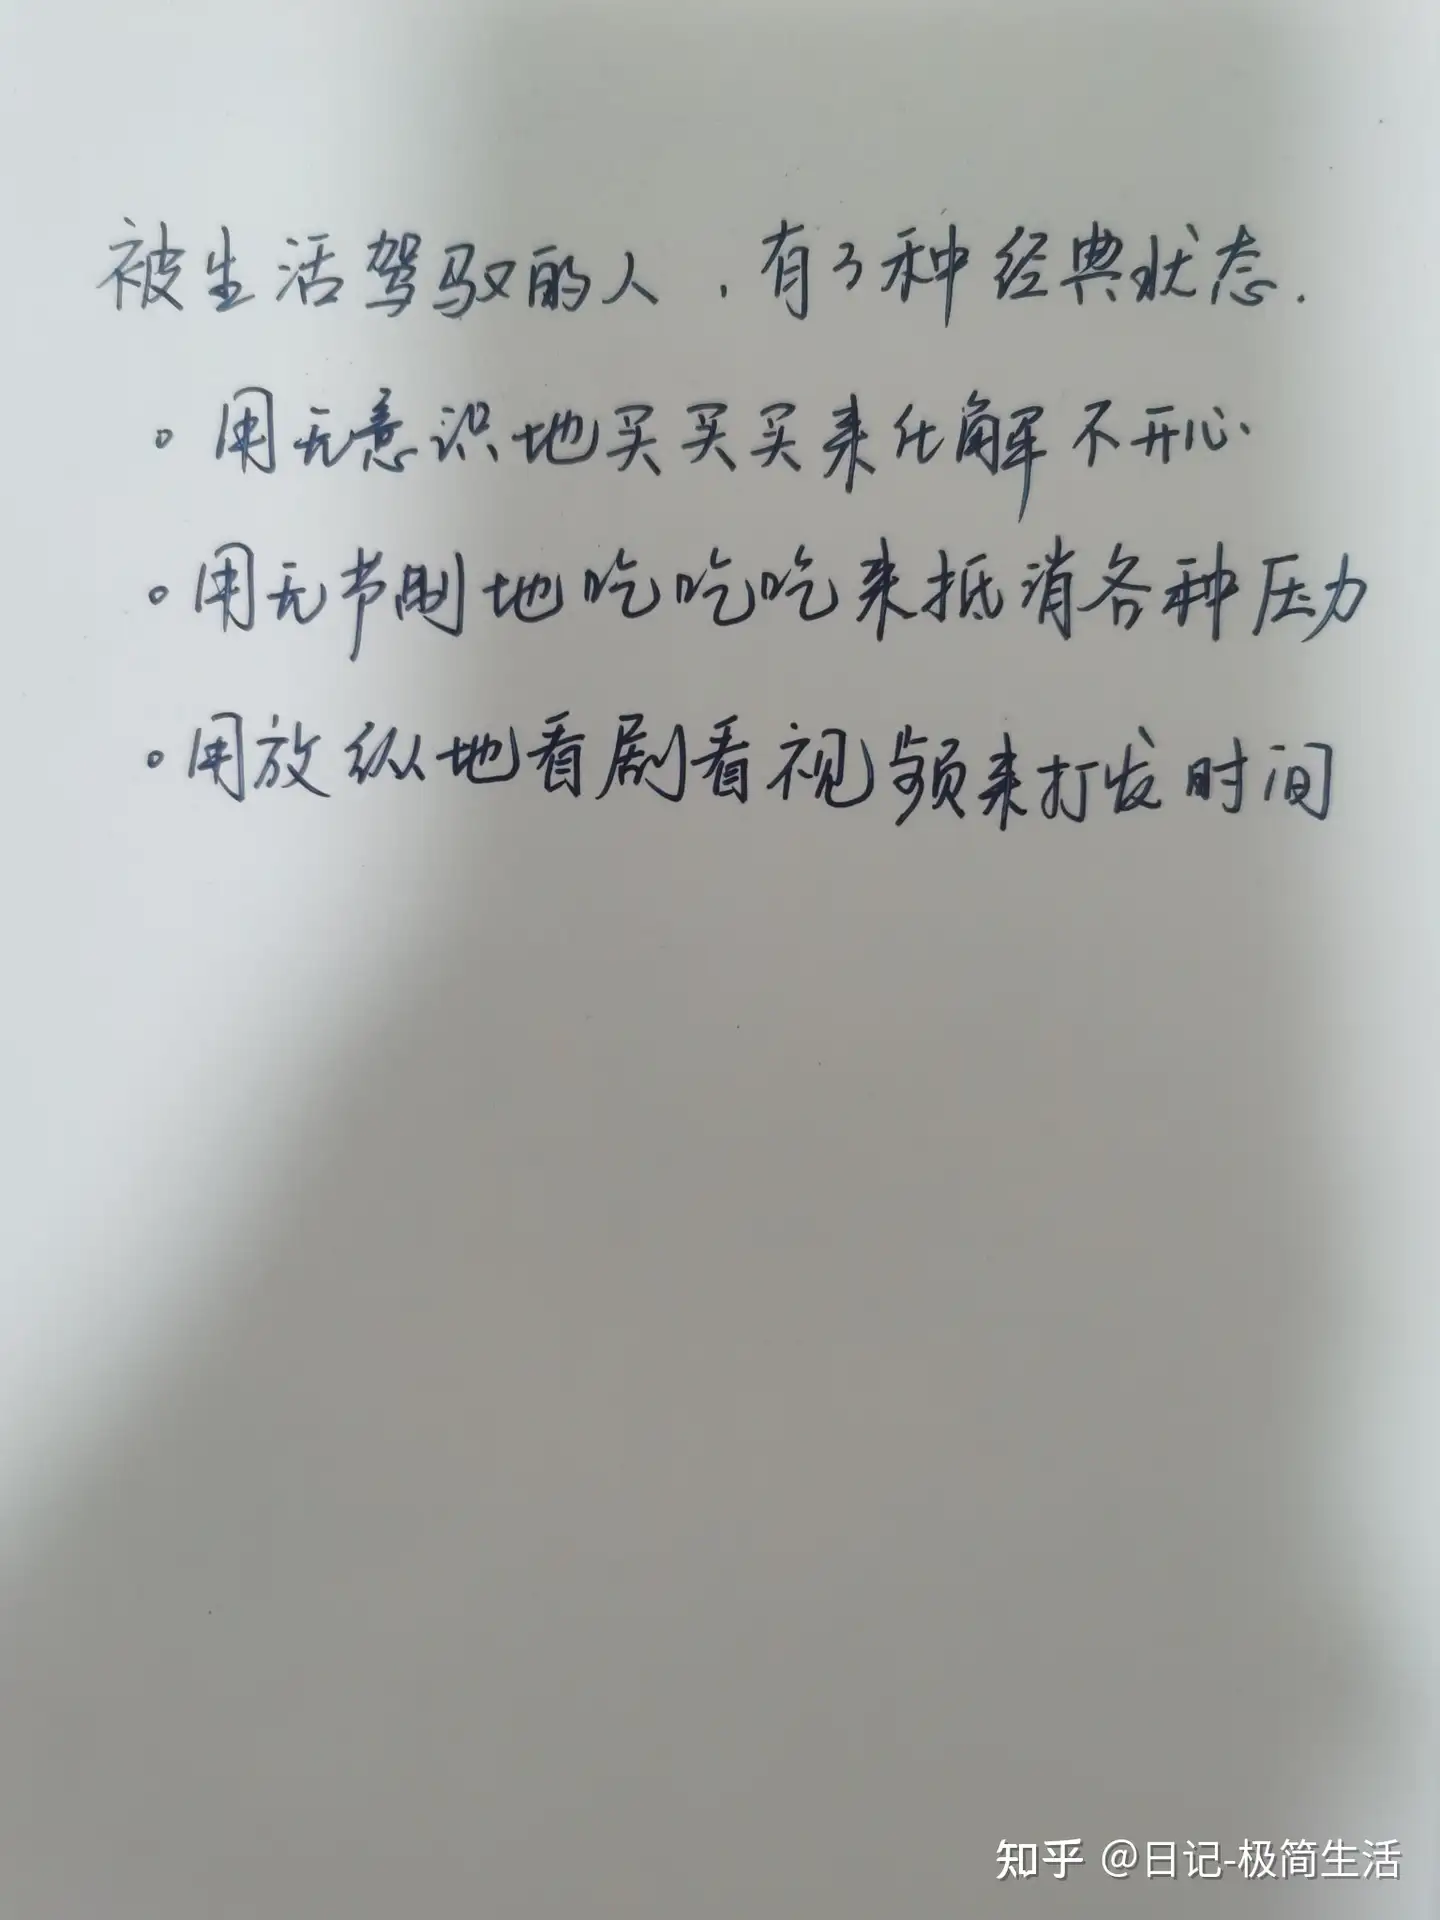 被生活驾驭的人,有3种经典状态.
。用无意识地买买买来化解不开心
。用无节制地吃吃吃来抵消各种压力
。用放纵地看剧看视频来打发时间
知乎 @日记-极简生活